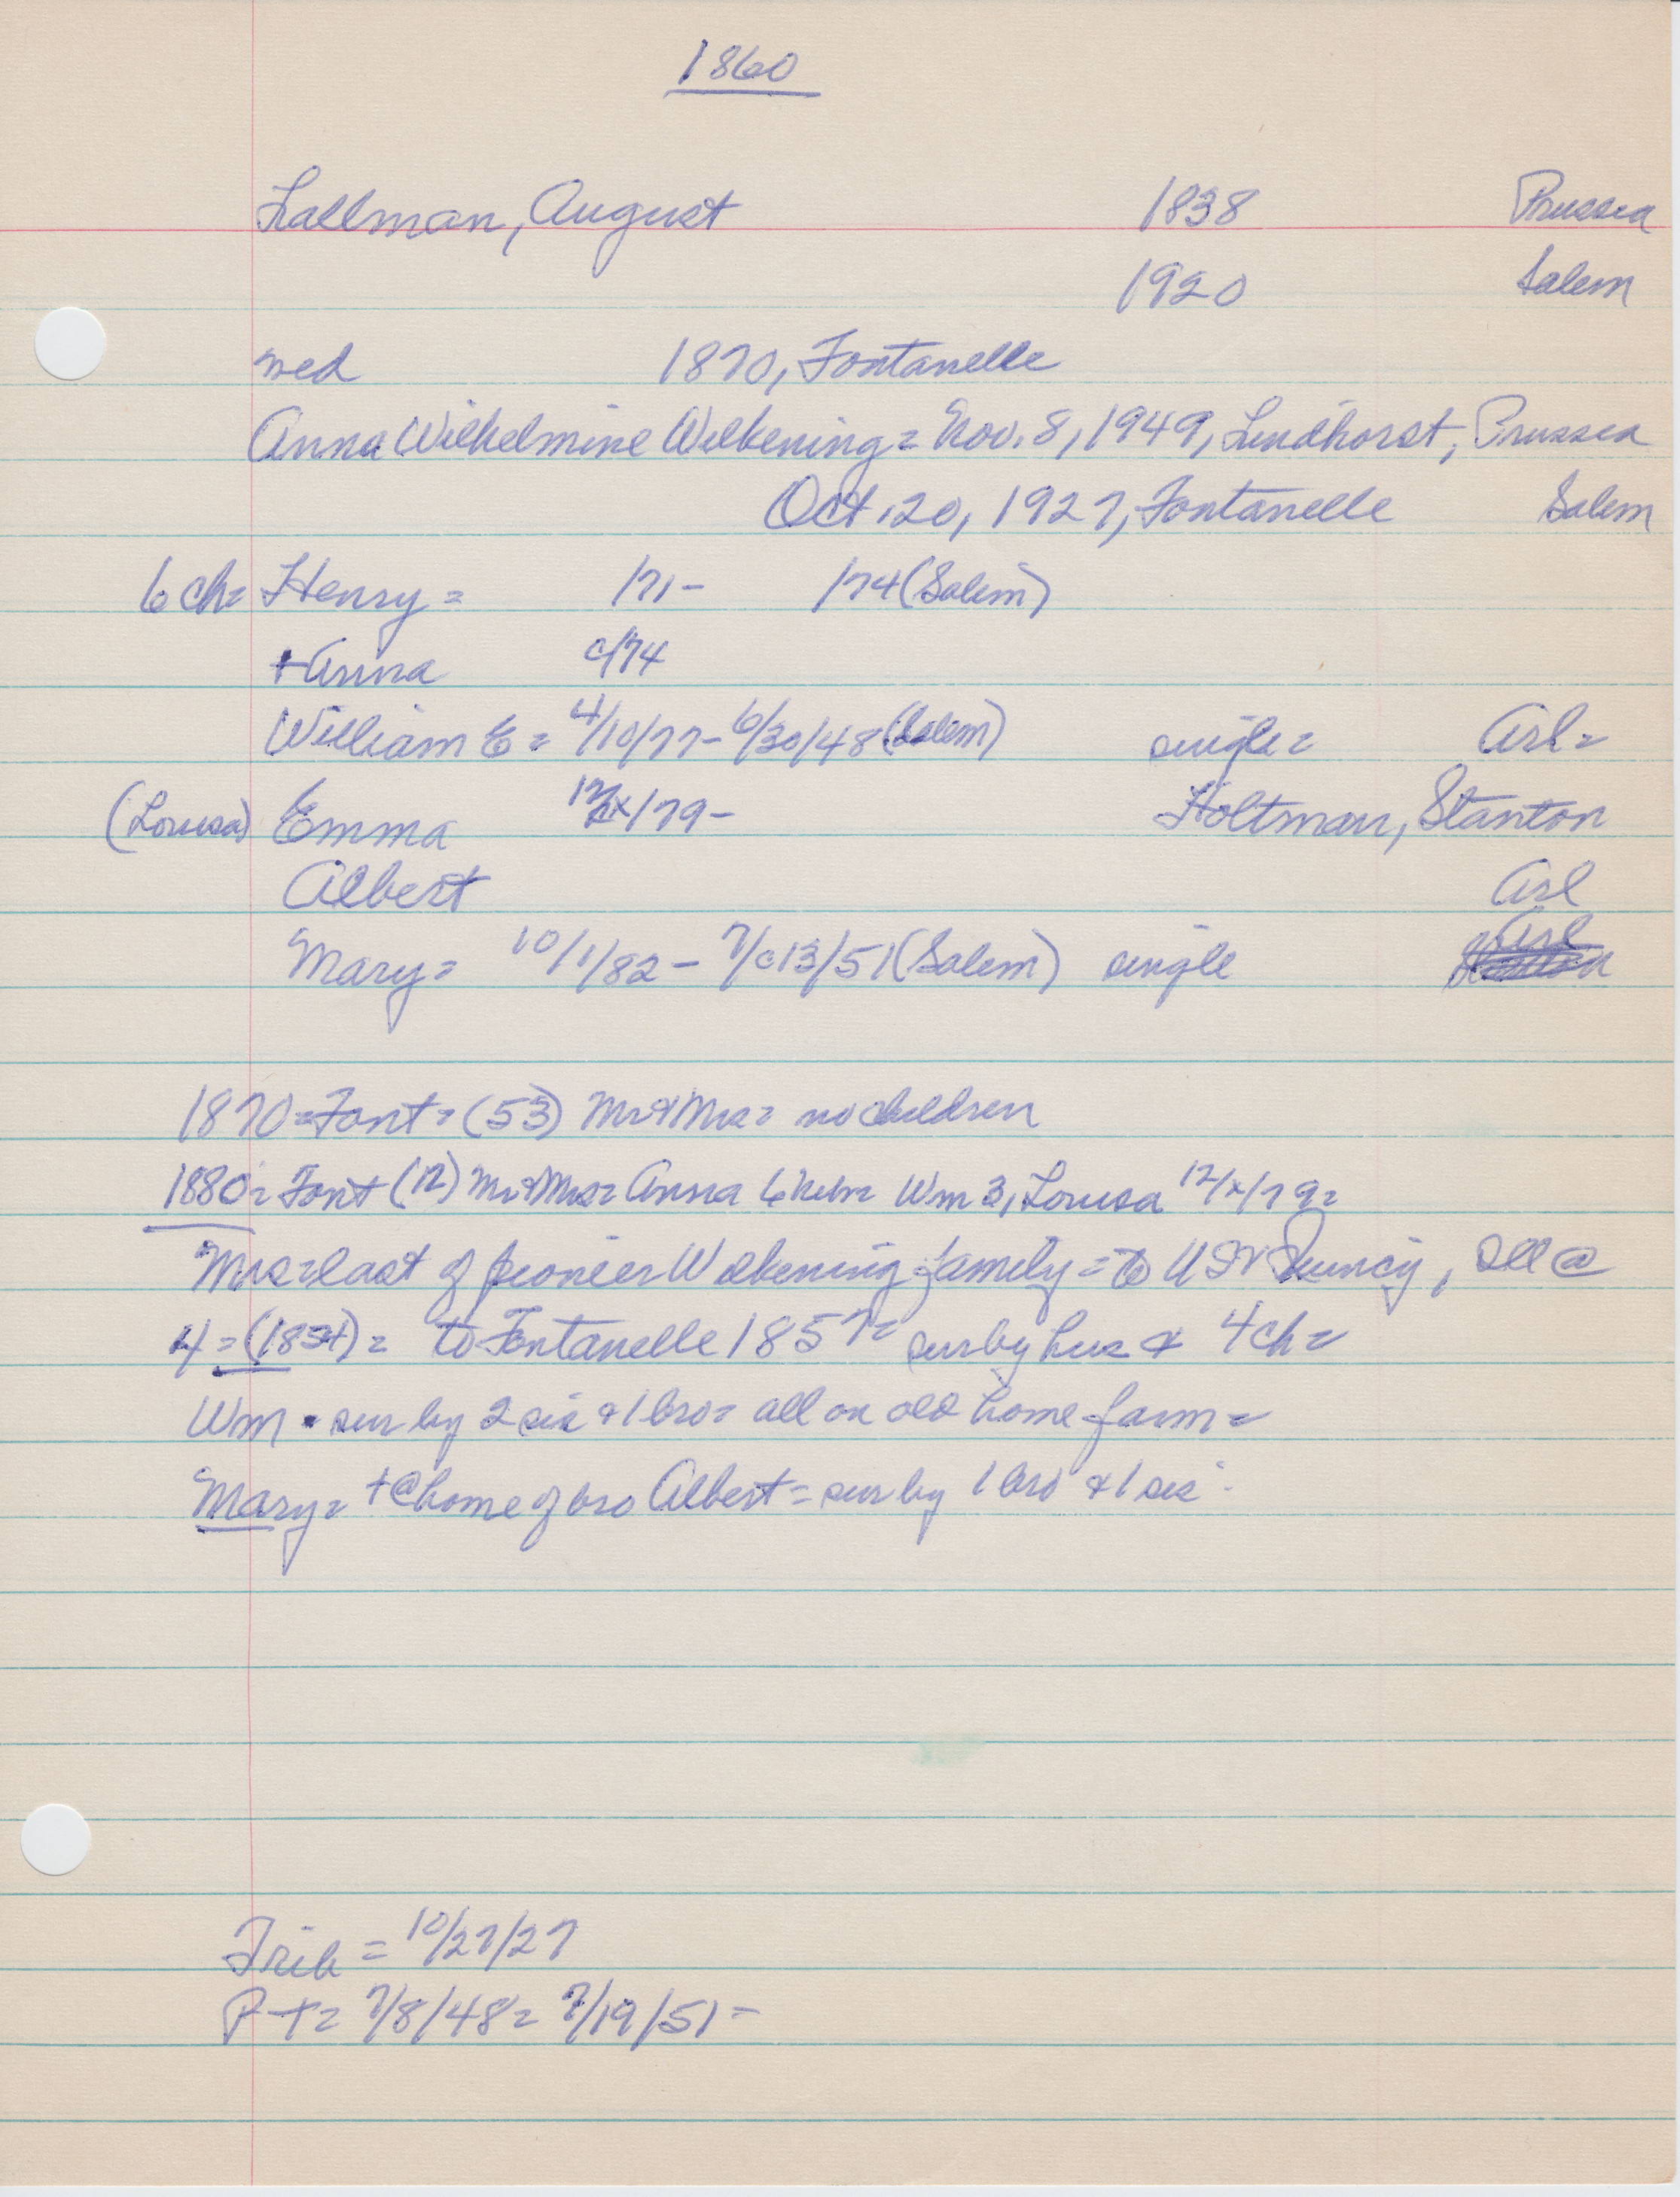 1860
Lallman, August 1838 Prussia
1920 Salem
med 1870, Fontanelle
Anna Wilhelmine Wilkening = Nov. 8, 1949, Lindhorst, Prussia
Oct. 20, 1927, Fontanelle Salem
6 ch = Henry = /71 - /74 (Salem)
+ Anna c/74
William E = 4/10/77 - 6/30/48 (Salem) single = Arl =
(Louisa) Emma 12/x/79 - Holtman, Stanton
Albert Arl
Mary = 10/1/82 - 7/c13/51 (Salem) single Arl
1870 = Font = (53) Mr & Mrs = no children
1880 = Font (12) Mr & Mrs = Anna 6 Wm 3, Louisa 12/x/79 =
Mrs = last of pioneer Wilkening family = to US & Quincy, Ill @
4 = (1854) = to Fontanelle 1857 = sur by hus & 4 ch =
Wm = sur by 2 sis & 1 bro = all on old home farm =
Mary = + @ home of bro Albert = sur by 1 bro & 1 sis
Trib = 10/27/27
P-T = 7/8/48 = 7/19/51 =